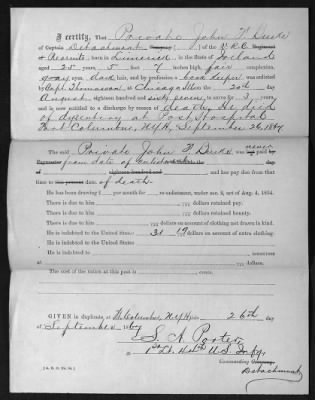 I Certify, That Private John F.
of Captain Detachment Company ( ) of the Regiment
of Recruits, born in Limerick, in the State of Ireland
aged 25 years, 5 feet 7 inches high, fair complexion,
gray eyes, dark hair, and by profession a book keeper was enlisted
by Capt. Thomasson at Chicago Ills on the 20th day
August, eighteen hundred and sixty seven, to serve for 3 years,
and is now entitled to a discharge by reason of death, He died
of dysentery at Post Hospital
Fort Columbus, N.Y.H., September 26, 1867
The said Private John F. was never paid by
Paymaster from date of enlistment
eighteen hundred and and has pay due from that
time to the present date of death.
He has been drawing $ per month for re-enlistment, under sec. 2, act of Aug. 4, 1854.
There is due to him dollars retained pay.
There is due to him dollars bounty.
There is due to him dollars on account of clothing not drawn in kind.
He is indebted to the United States 31 19 dollars on account of extra clothing.
He is indebted to the United States
He is indebted to
at dollars.
The cost of the ration at this post is cents.
GIVEN in duplicate, at Ft. Columbus, N.Y.H. this 26th day
of September 1867
S. A. Porter
1st Lt. U.S. Infy.
Commanding Company.
Detachment